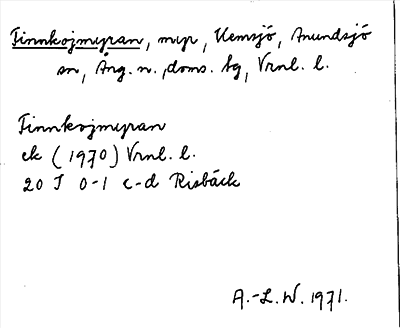 Finnkojmyran, myr, Kemsjö, Anundsjö
sn, Ång. n., doms. bg, Vrnl. l.
Finnkojmyran
ek (1970) Vrnl. l.
20 I 0-1 c-d Risbäck
A.-L. W. 1971.